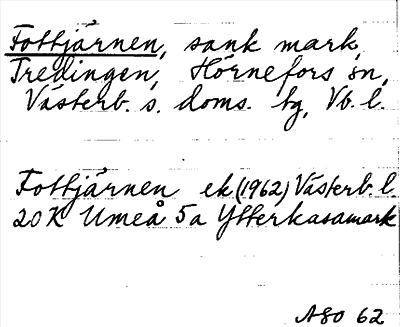 Fottjärnen, sank mark,
Tredingen, Hörnefors sn,
Västerb. s. doms. hg, Vb. l.
Fottjärnen ek (1962) Västerb. l
20K Umeå 5a Ytterkasamark
A80 62